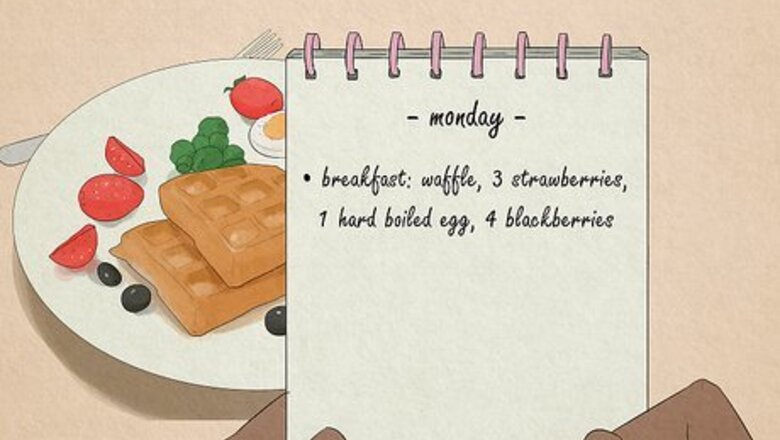 - monday -
• breakfast: waffle, 3 strawberries,
1 hard boiled egg, 4 blackberries